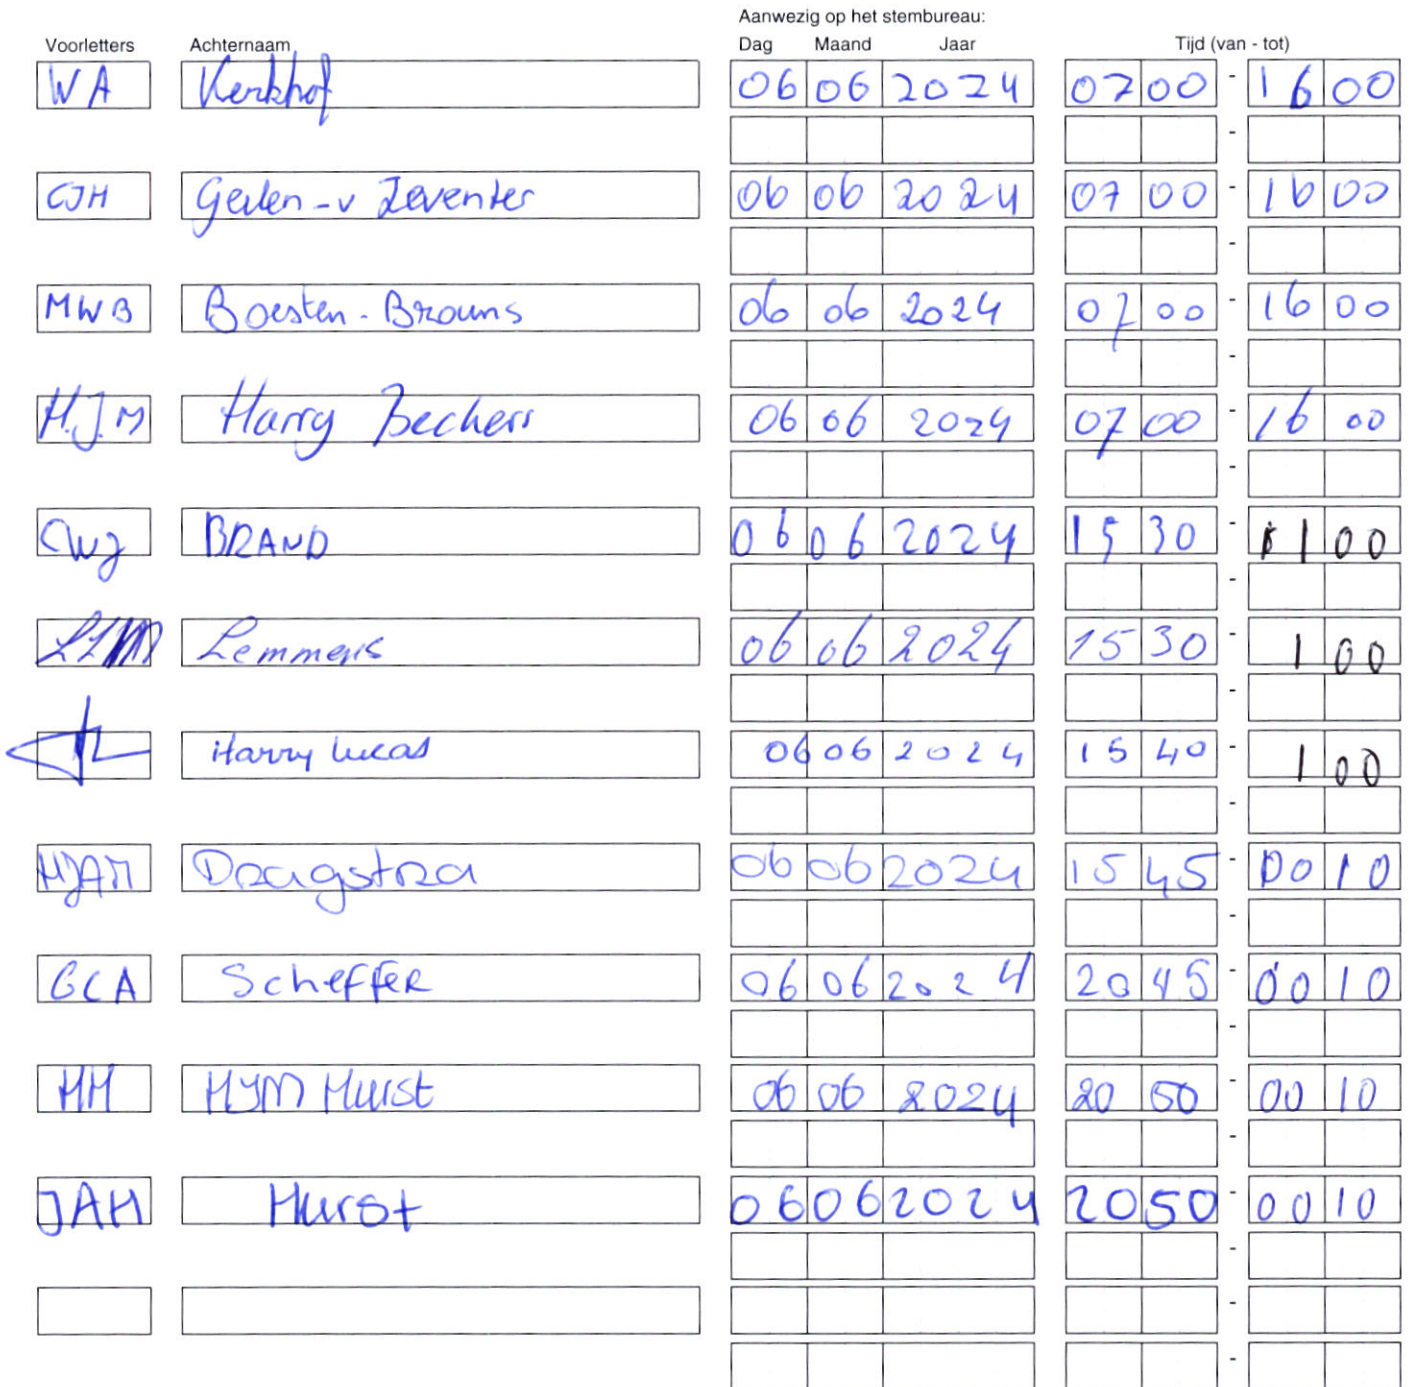 Aanwezig op het stembureau:
Voorletters Achternaam Dag Maand Jaar Tijd (van - tot)
WA Kerkhof 06 06 2024 07 00 - 16 00
-
CJH Geilen - v Deventer 06 06 2024 07 00 - 16 00
-
MWB Boesten - Brouns 06 06 2024 07 00 - 16 00
-
H.J.M Harry Beckers 06 06 2024 07 00 - 16 00
-
CWJ BRAND 06 06 2024 15 30 - 1 00
-
Lemmens 06 06 2024 15 30 - 1 00
-
Harry Lucas 06 06 2024 15 40 - 1 00
-
HJAM Dragstra 06 06 2024 15 45 - 00 10
-
GCA Scheffer 06 06 2024 20 45 - 00 10
-
HH HJM Hurst 06 06 2024 20 50 - 00 10
-
JAH Hurst 06 06 2024 20 50 - 00 10
-
-
-